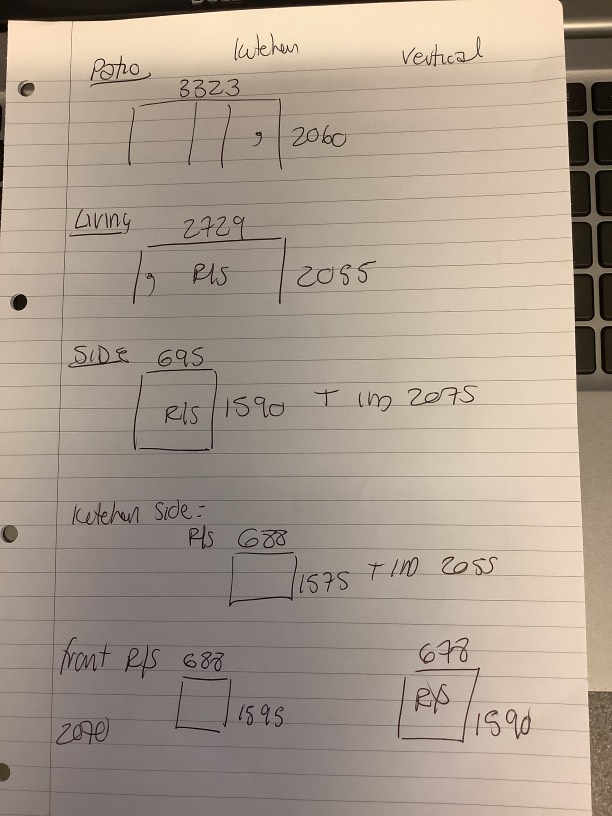 Kitchen
Vertical
Patio
3323
2060
Living
2729
R/S
2055
SIDE 695
R/S 1590 + 2075
Kitchen Side =
R/S 688
1575 + 2055
front R/S 688
1595
2070
678
R/S
1590